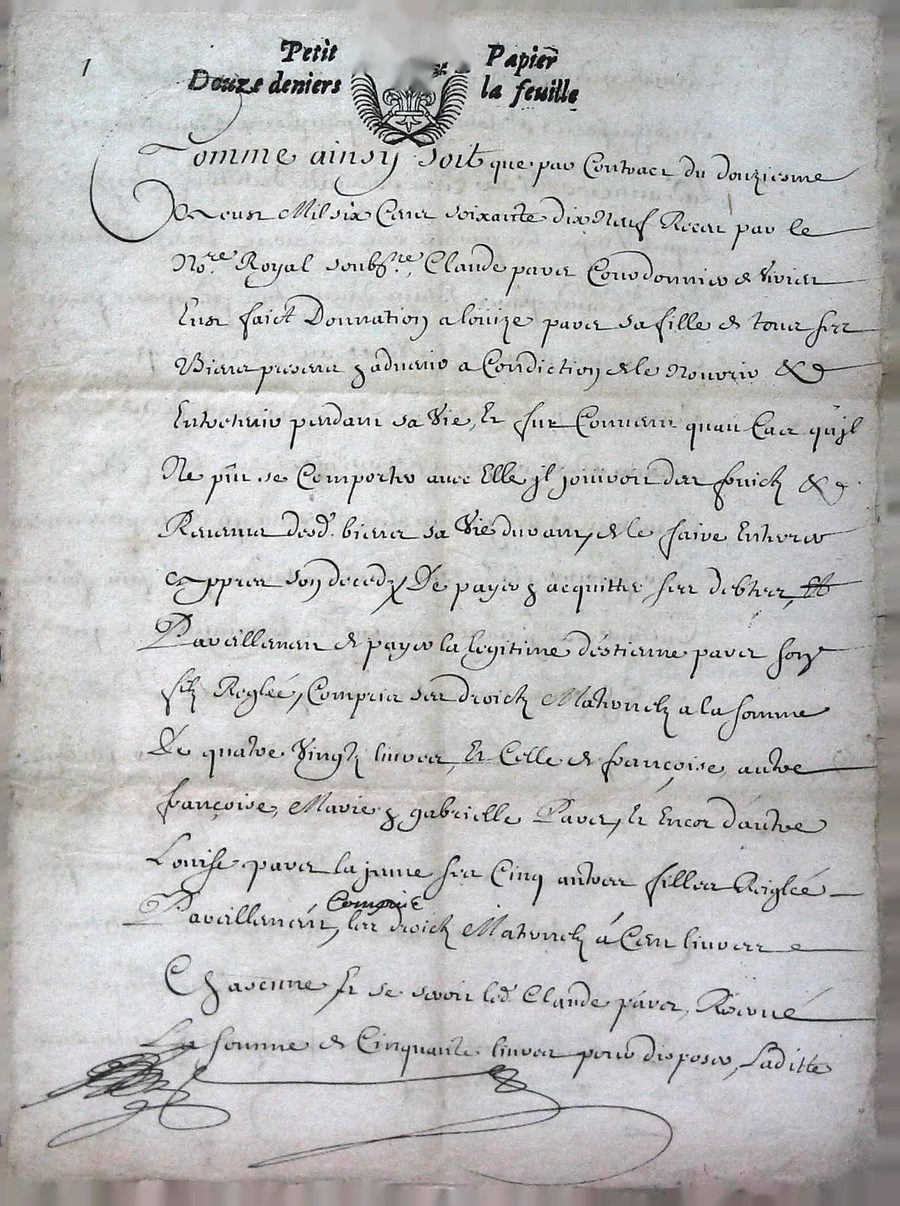 1
Petit Papier
Douze deniers la feuille
Comme ainsy soit que par Contract du douziesme
Aoust Mil six Cens soixante dix Neuf Receu par le
No.re Royal soubs.né, Claude paves Courdonnier de Vivier
Eust faict Donnation a louize paves sa fille de tous ses
Biens presens & advenir a Condiction de le Nourir & de
Entretenir pendant sa Vie, Et fut Convenu quau Cas qu'jl
Ne peut se Comporter avec Elle jl jouiroit des fruicts & de
Revenus desd. biens sa Vie durant, de le faire Enterrer
Appres son deceds De payer & acquitter ses debtes, Et
Pareillement de payer la legitime d'estienne paves son
fils Reglée, Compris ses droicts Maternels a la somme
De quatre Vingts livres, Et Celle de françoise, autre
françoise, Marie & gabrielle Paves, Et Encor d'autre
Louise paves la jeune ses Cinq autres filles Reiglée
Pareillement, Compris les droicts Maternels á Cent livres
Chacune Et se seroit led. Claude paves, Rezervé
La somme de Cinquante livres pour disposer, Laditte